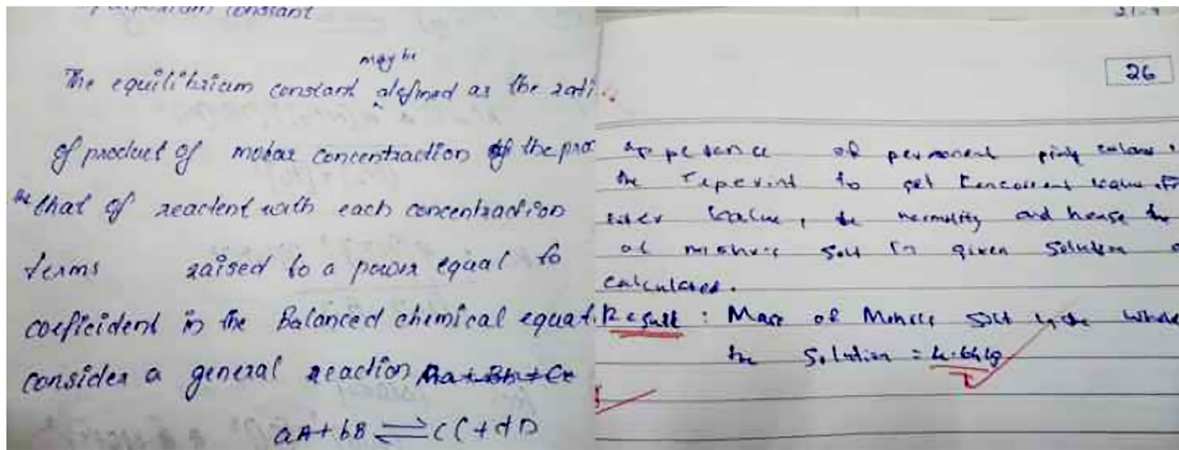 constant
may be
The equilibrium constant defined as the rati
of product of molar concentraction of the pro
the that of reactent with each concentraction
terms raised to a power equal to
coeficident in the Balanced chemical equat.
consider a general reaction
aA + bB ⇌ cC + dD
26
of permonent pink colour.
the to get
the normality and hense the
of mohr's solt in given Solution
calculated.
Result : Mass of Mohr's Solt in the whole
the Solution =